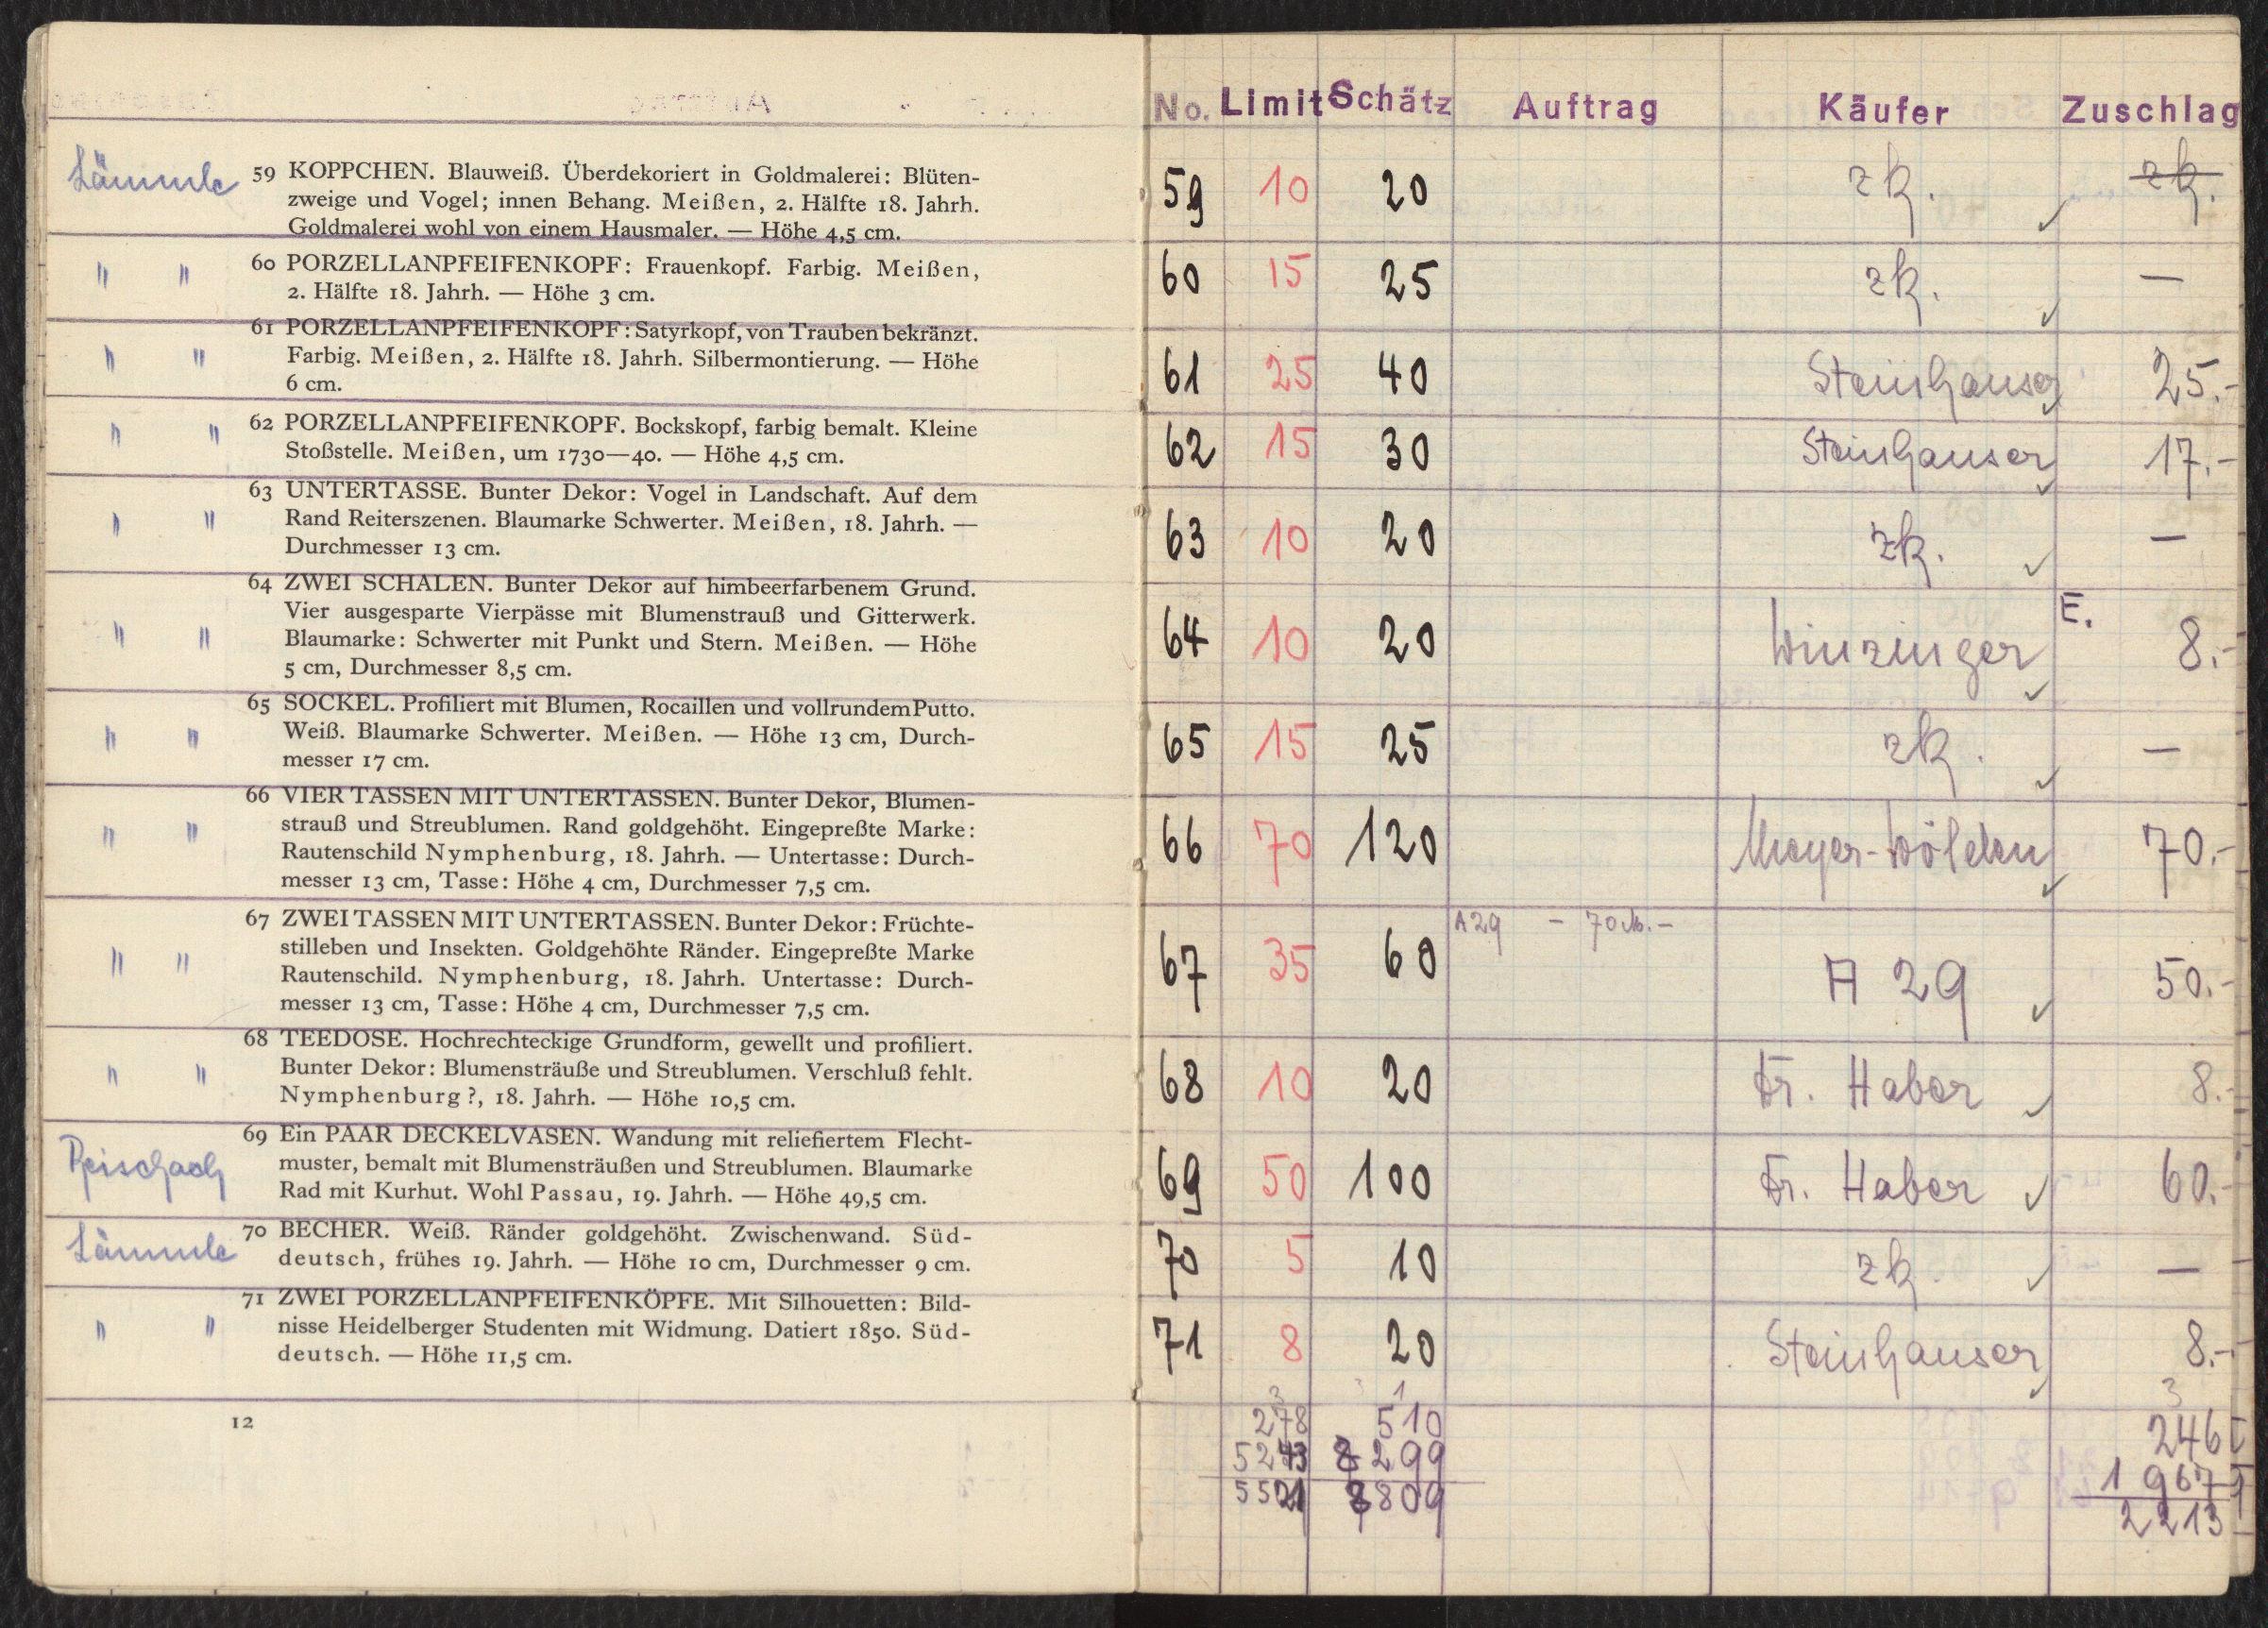 Lämmle 59 KOPPCHEN. Blauweiß. Überdekoriert in Goldmalerei: Blüten-
zweige und Vogel; innen Behang. Meißen, 2. Hälfte 18. Jahrh.
Goldmalerei wohl von einem Hausmaler. — Höhe 4,5 cm.
" " 60 PORZELLANPFEIFENKOPF: Frauenkopf. Farbig. Meißen,
2. Hälfte 18. Jahrh. — Höhe 3 cm.
" " 61 PORZELLANPFEIFENKOPF: Satyrkopf, von Trauben bekränzt.
Farbig. Meißen, 2. Hälfte 18. Jahrh. Silbermontierung. — Höhe
6 cm.
" " 62 PORZELLANPFEIFENKOPF. Bockskopf, farbig bemalt. Kleine
Stoßstelle. Meißen, um 1730—40. — Höhe 4,5 cm.
" " 63 UNTERTASSE. Bunter Dekor: Vogel in Landschaft. Auf dem
Rand Reiterszenen. Blaumarke Schwerter. Meißen, 18. Jahrh. —
Durchmesser 13 cm.
" " 64 ZWEI SCHALEN. Bunter Dekor auf himbeerfarbenem Grund.
Vier ausgesparte Vierpässe mit Blumenstrauß und Gitterwerk.
Blaumarke: Schwerter mit Punkt und Stern. Meißen. — Höhe
5 cm, Durchmesser 8,5 cm.
" " 65 SOCKEL. Profiliert mit Blumen, Rocaillen und vollrundem Putto.
Weiß. Blaumarke Schwerter. Meißen. — Höhe 13 cm, Durch-
messer 17 cm.
" " 66 VIER TASSEN MIT UNTERTASSEN. Bunter Dekor, Blumen-
strauß und Streublumen. Rand goldgehöht. Eingepreßte Marke:
Rautenschild Nymphenburg, 18. Jahrh. — Untertasse: Durch-
messer 13 cm, Tasse: Höhe 4 cm, Durchmesser 7,5 cm.
" " 67 ZWEI TASSEN MIT UNTERTASSEN. Bunter Dekor: Früchte-
stilleben und Insekten. Goldgehöhte Ränder. Eingepreßte Marke
Rautenschild. Nymphenburg, 18. Jahrh. Untertasse: Durch-
messer 13 cm, Tasse: Höhe 4 cm, Durchmesser 7,5 cm.
" " 68 TEEDOSE. Hochrechteckige Grundform, gewellt und profiliert.
Bunter Dekor: Blumensträuße und Streublumen. Verschluß fehlt.
Nymphenburg?, 18. Jahrh. — Höhe 10,5 cm.
Reischach 69 Ein PAAR DECKELVASEN. Wandung mit reliefiertem Flecht-
muster, bemalt mit Blumensträußen und Streublumen. Blaumarke
Rad mit Kurhut. Wohl Passau, 19. Jahrh. — Höhe 49,5 cm.
Lämmle 70 BECHER. Weiß. Ränder goldgehöht. Zwischenwand. Süd-
deutsch, frühes 19. Jahrh. — Höhe 10 cm, Durchmesser 9 cm.
" " 71 ZWEI PORZELLANPFEIFENKÖPFE. Mit Silhouetten: Bild-
nisse Heidelberger Studenten mit Widmung. Datiert 1850. Süd-
deutsch. — Höhe 11,5 cm.
12
No. Limit Schätz Auftrag Käufer Zuschlag
59 10 20 zk. ✓ zk.
60 15 25 zk. ✓ —
61 25 40 Steinhauser ✓ 25.-
62 15 30 Steinhauser ✓ 17.-
63 10 20 zk. ✓ —
64 10 20 Winzinger ✓ E. 8.-
65 15 25 zk. ✓ —
66 70 120 Meyer-Wölden ✓ 70.-
A29 - 70 M.-
67 35 60 A 29 ✓ 50.-
68 10 20 Fr. Haber ✓ 8.-
69 50 100 Fr. Haber ✓ 60.-
70 5 10 zk. ✓ —
71 8 20 Steinhauser ✓ 8.-
3 1 3
278 510 246
5243 8299 1967
5521 8809 2213